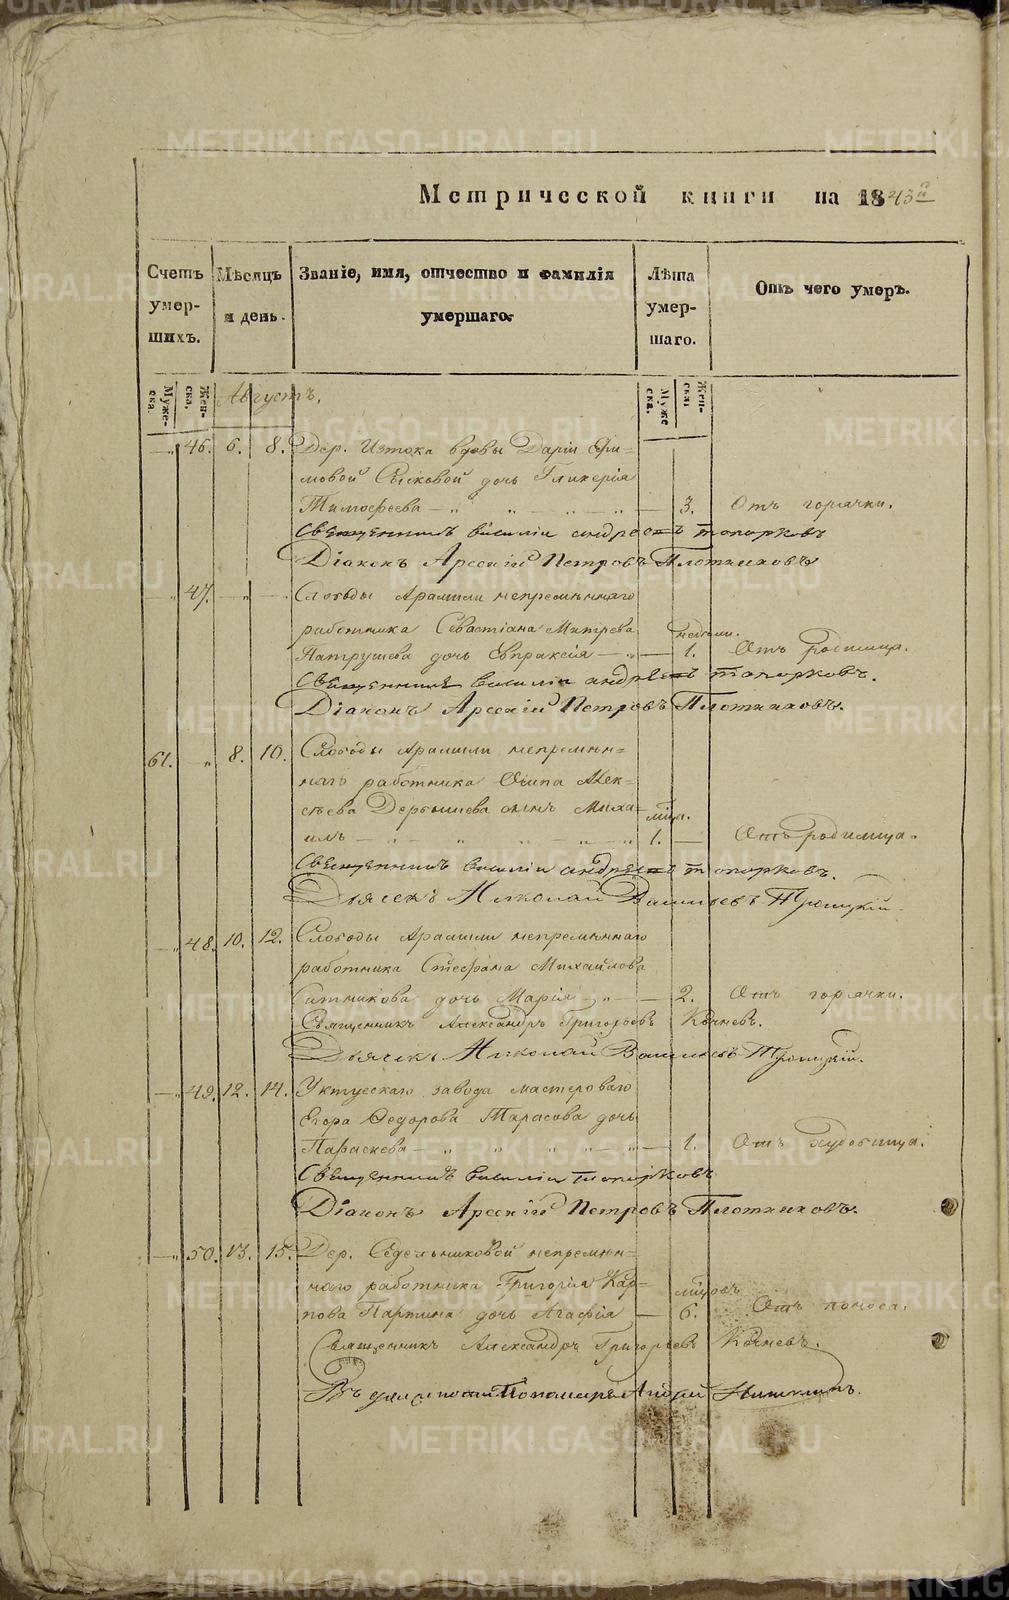 Метрической книги на 1843й
Счетъ умер-шихъ.
Мѣсяцъ и день.
Званіе, имя, отчество и фамилія умершаго.
Лѣта умер-шаго.
Отъ чего умеръ.
Муже-ска.
Жен-ска.
Муже ска.
Жен-ска.
Августъ.
46. 6. 8. Дер. Изтока вдовы Даріи Ефи=
мовой Сысковой дочь Гликерія
Тимофеева 3. Отъ горячки.
Священникъ Василіи Андреевъ Топорковъ
Діаконъ Арсеній Петровъ Плотниковъ
47. Слободы Арамили непременнаго
работника Севастіана Митрева недѣли.
Патрушева дочь Евпраксія 1. Отъ родимца.
Священникъ Василіи Андреевъ Топорковъ.
Діаконъ Арсеній Петровъ Плотниковъ.
61. 8. 10. Слободы Арамили непремѣн=
наго работника Осипа Алек=
сѣева Дербышева сынъ Миха= мѣца.
илъ 1. Отъ родимца.
Священникъ Василіи Андреевъ Топорковъ.
Дьячекъ Николай Васильевъ Троицкій.
48. 10. 12. Слободы Арамили непремѣннаго
работника Стефана Михайлова
Ситникова дочь Марія 2. Отъ горячки.
Священникъ Александръ Григорьевъ Кочневъ.
Дьячекъ Николай Васильевъ Троицкій.
49. 12. 14. Уктускаго завода мастероваго
Егора Федорова Тарасова дочь
Параскева 1. Отъ худобища.
Священникъ Василіи Топорковъ
Діаконъ Арсеній Петровъ Плотниковъ.
50. 13. 15. Дер. Седельниковой непремѣн=
наго работника Григорія Кар= мѣцовъ
пова Паршина дочь Агафія 6. Отъ поноса.
Священникъ Александръ Григорьевъ Кочневъ.
Пономарь Андрей
METRIKI.GASO-URAL.RU